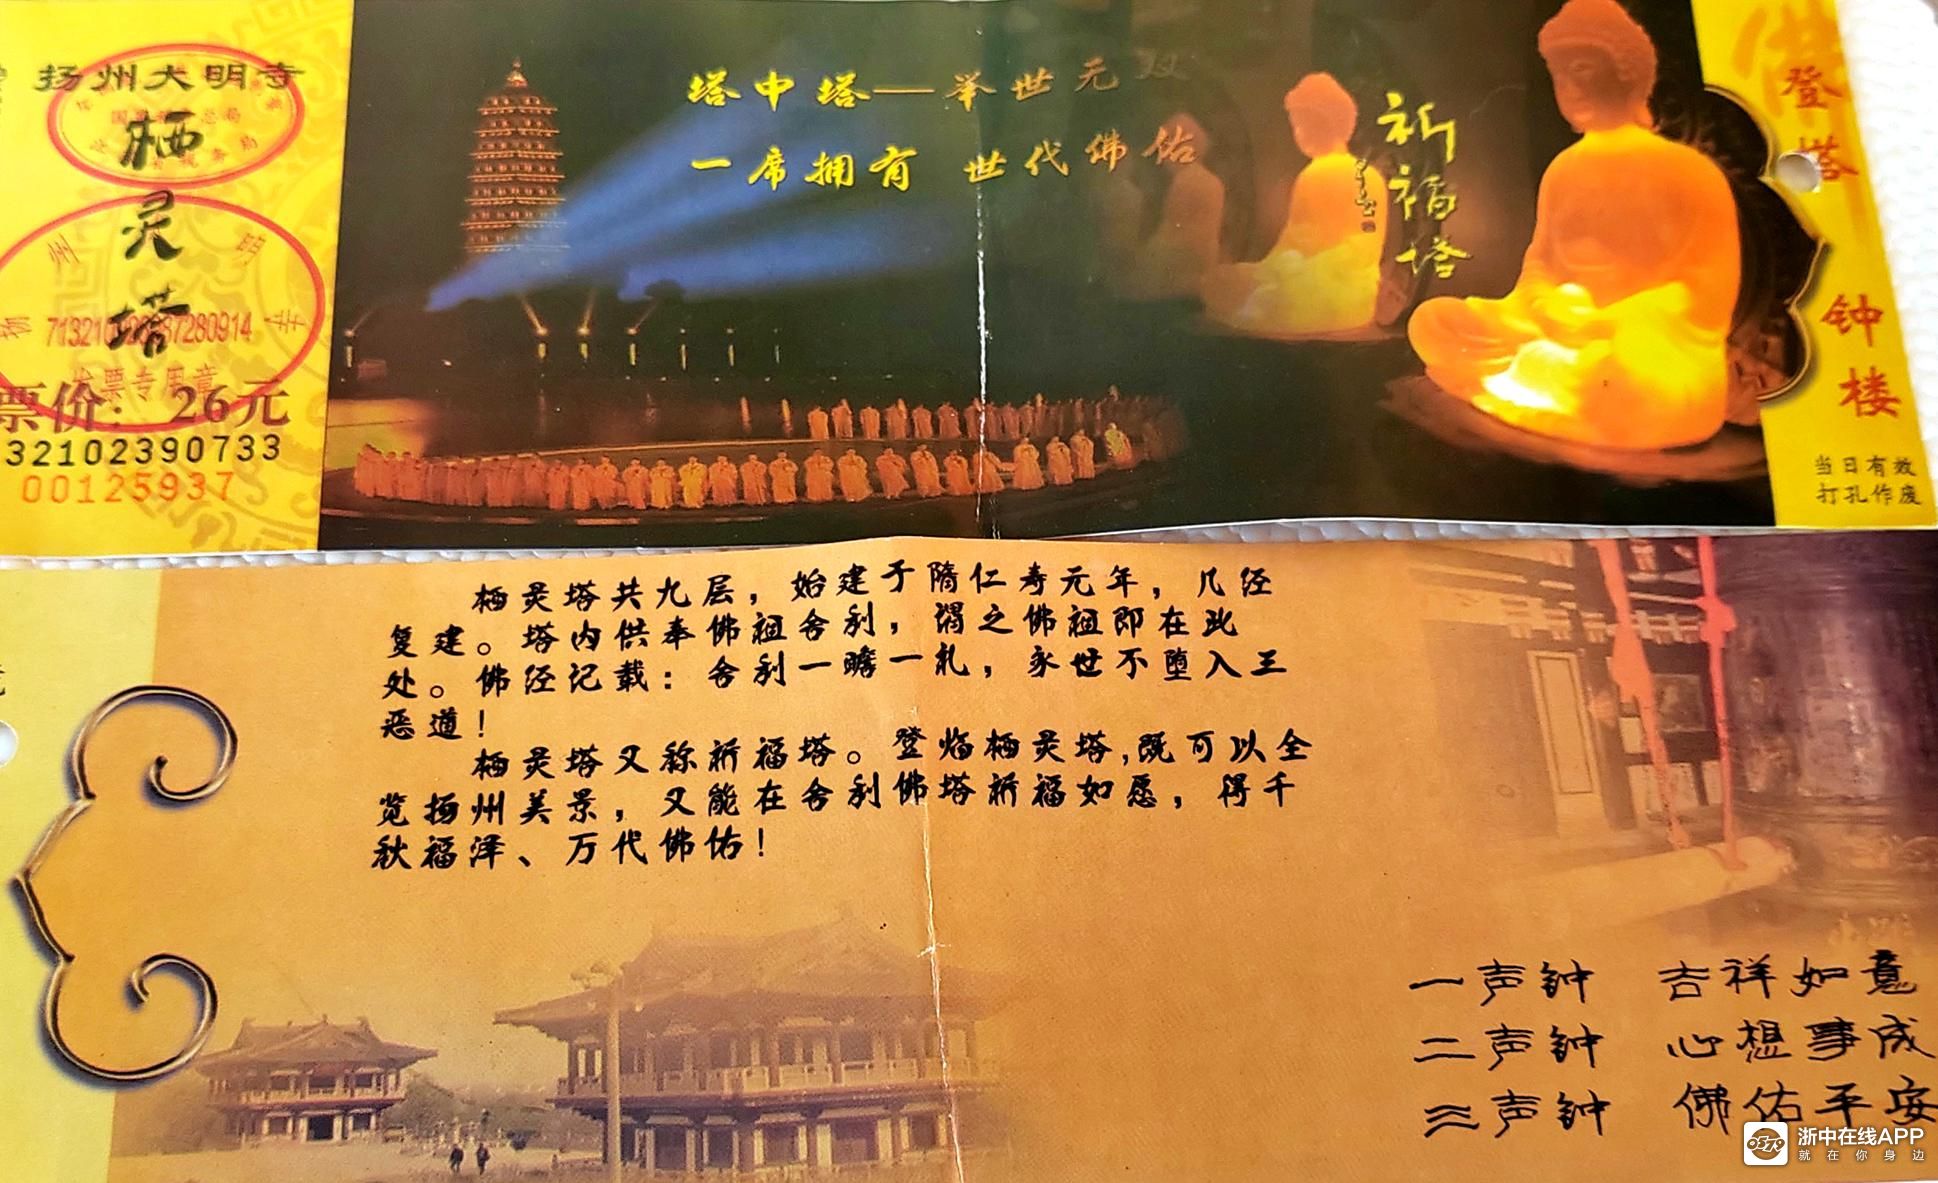 扬州大明寺
栖灵塔
票价：26元
32102390733
00125937
发票专用章
塔中塔—举世无双
一席拥有 世代佛佑
祈福塔
登塔
钟楼
当日有效
打孔作废
栖灵塔共九层，始建于隋仁寿元年，几经
复建。塔内供奉佛祖舍利，谓之佛祖即在此
处。佛经记载：舍利一瞻一礼，永世不堕入三
恶道！
栖灵塔又称祈福塔。登临栖灵塔,既可以全
览扬州美景，又能在舍利佛塔祈福如愿，得千
秋福泽、万代佛佑！
一声钟 吉祥如意
二声钟 心想事成
三声钟 佛佑平安
浙中在线APP
就在你身边